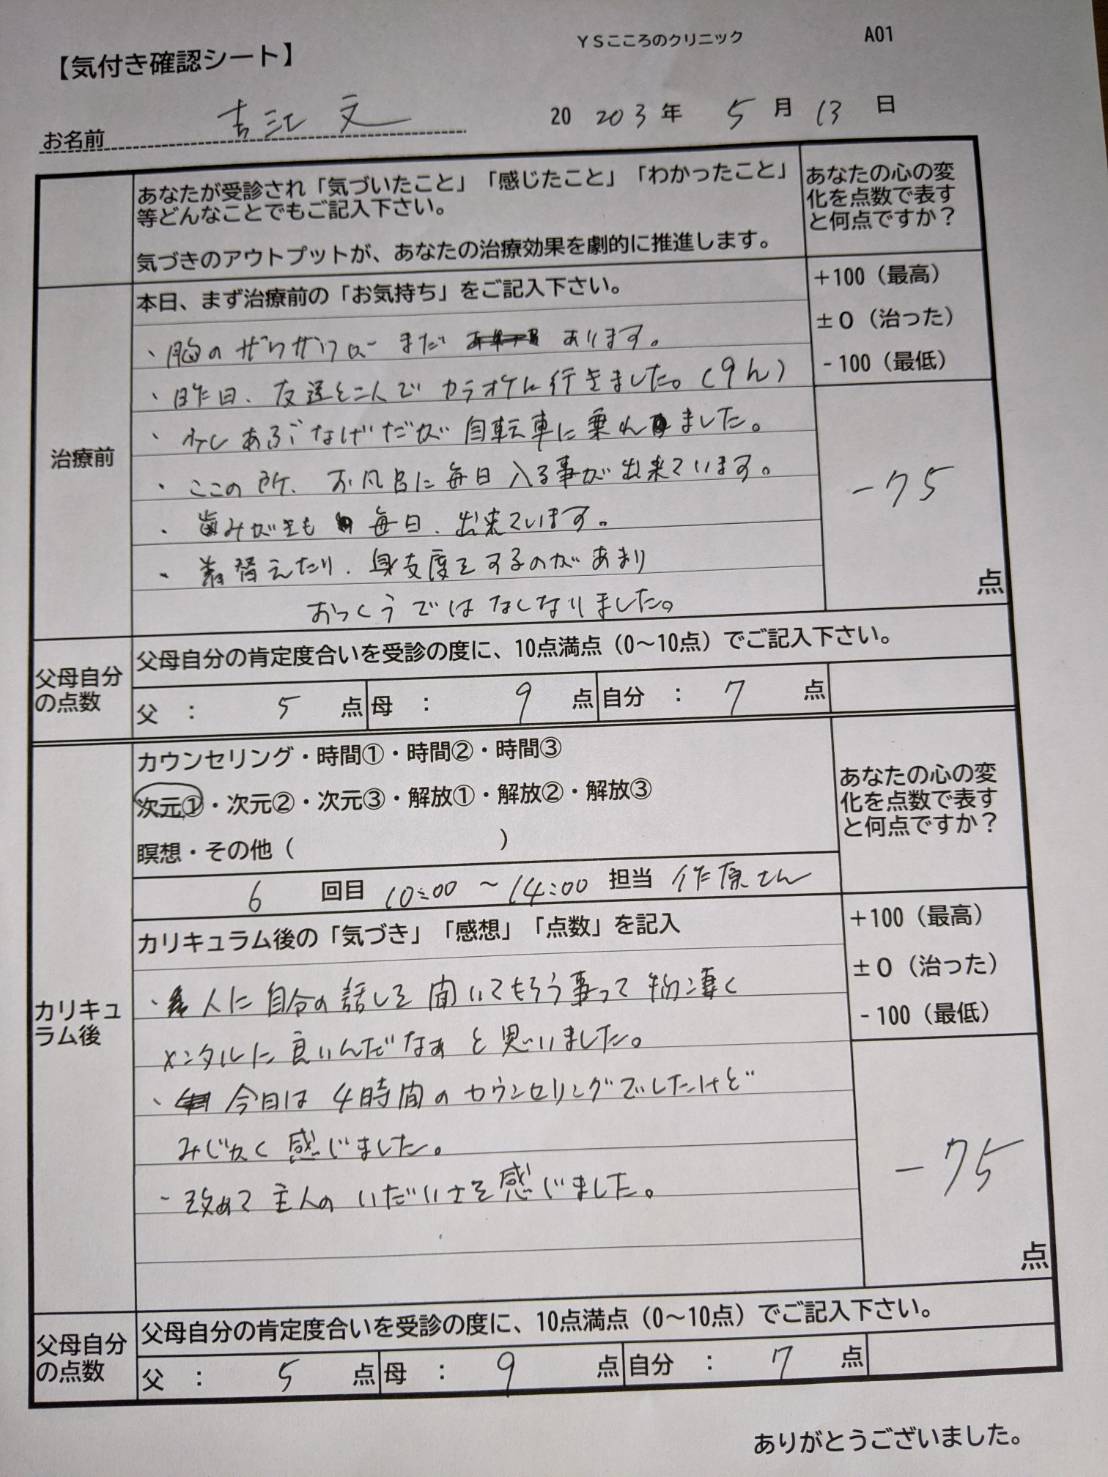 【気付き確認シート】
YSこころのクリニック
A01
お名前 吉江 文
20 2023年 5月 13日
あなたが受診され「気づいたこと」「感じたこと」「わかったこと」
等どんなことでもご記入下さい。
気づきのアウトプットが、あなたの治療効果を劇的に推進します。
あなたの心の変
化を点数で表す
と何点ですか？
治療前
本日、まず治療前の「お気持ち」をご記入下さい。
・胸のザワザワは まだ あります。
・昨日、友達と二人で カラオケに行きました。(9h)
・少しあぶなげだが 自転車に乗れました。
・ここの所、お風呂に毎日入る事が出来ています。
・歯みがきも 毎日、出来ています。
・着替えたり、身支度をするのがあまり
おっくうではなくなりました。
+100（最高）
±0（治った）
-100（最低）
-75
点
父母自分
の点数
父母自分の肯定度合いを受診の度に、10点満点（0～10点）でご記入下さい。
父 ： 5 点 母 ： 9 点 自分 ： 7 点
カリキュ
ラム後
カウンセリング・時間①・時間②・時間③
次元①・次元②・次元③・解放①・解放②・解放③
瞑想・その他（ ）
6 回目 10:00 ～14:00 担当 作原さん
あなたの心の変
化を点数で表す
と何点ですか？
カリキュラム後の「気づき」「感想」「点数」を記入
・人に自分の話しを聞いてもらう事って物凄く
メンタルに良いんだなぁと思いました。
・今日は4時間のカウンセリングでしたけど
みじかく感じました。
・改めて主人の いだいさを感じました。
+100（最高）
±0（治った）
-100（最低）
-75
点
父母自分
の点数
父母自分の肯定度合いを受診の度に、10点満点（0～10点）でご記入下さい。
父 ： 5 点 母 ： 9 点 自分 ： 7 点
ありがとうございました。